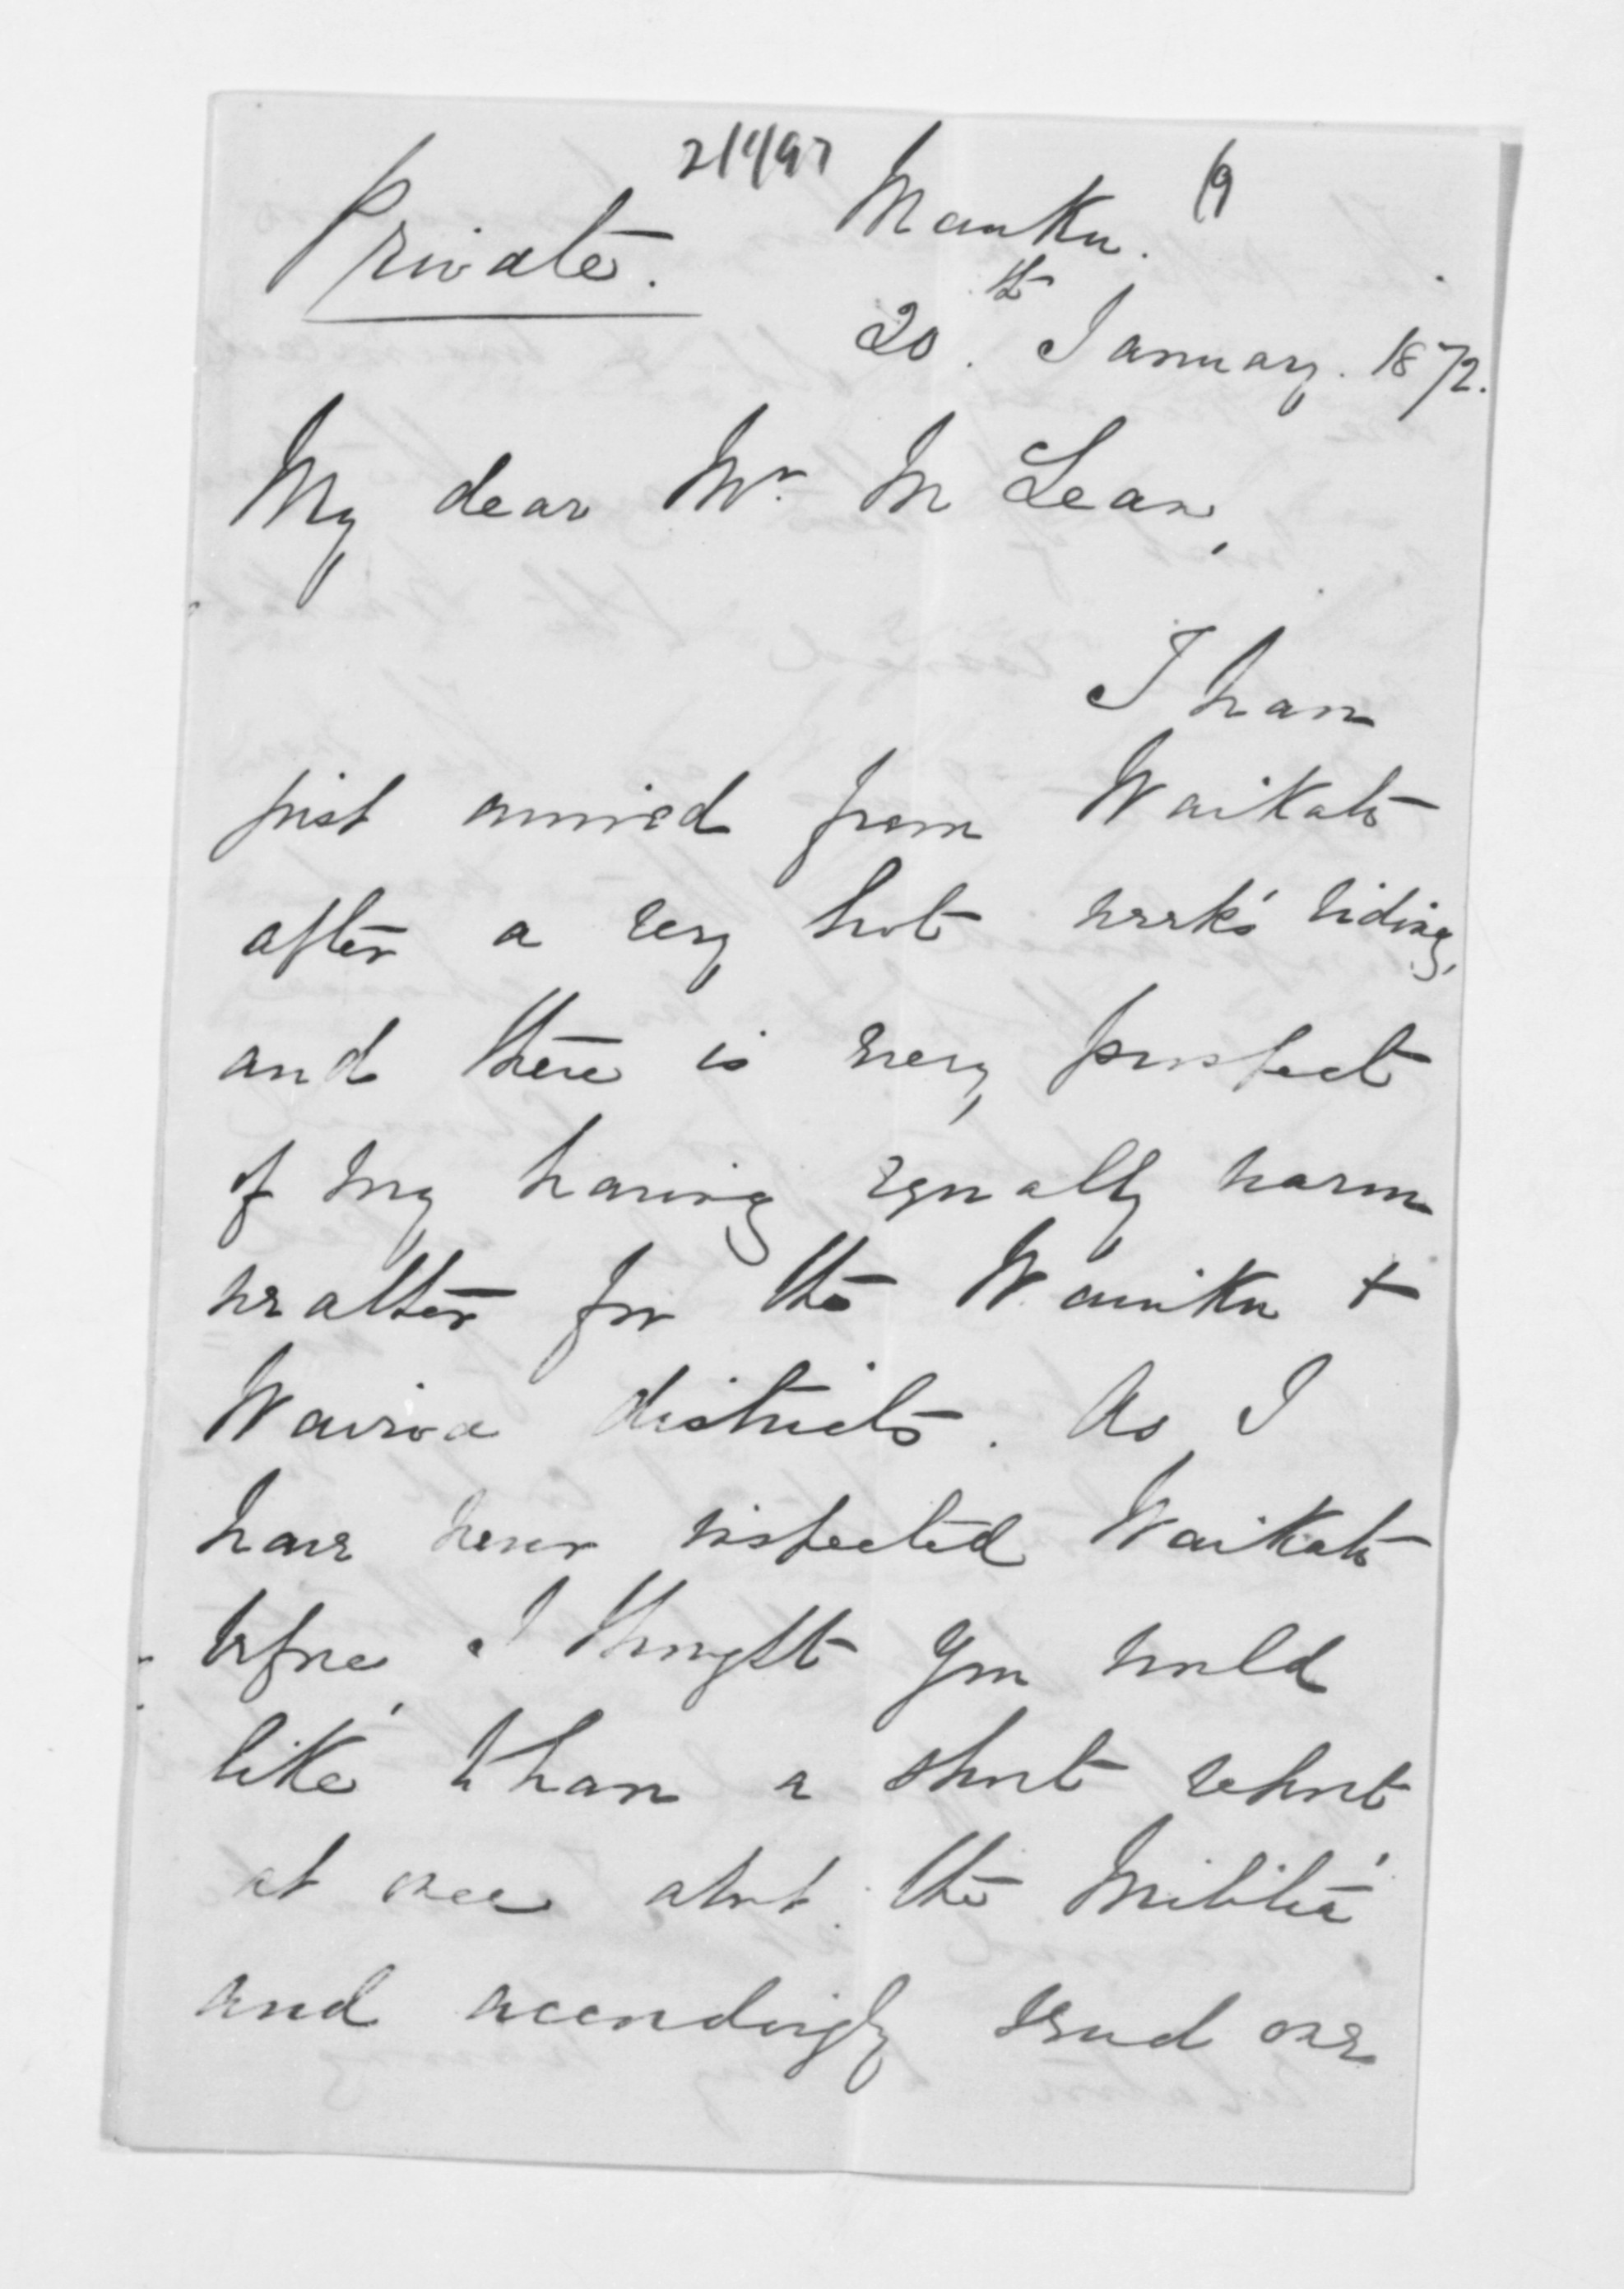 Private.
Mauku.
19
20th January. 1872.
My dear Mr. McLean,
I have
just arrived from Waikato
after a very hot week's riding,
and there is every prospect
of my having equally warm
weather for the Waiuku +
Wairoa districts. As I
have never inspected Waikato
before, I thought you would
like to have a short report
at once about the Militia
and accordingly send one